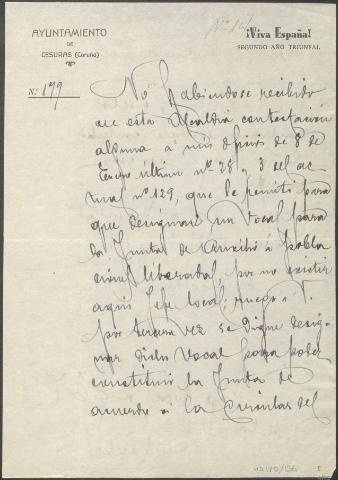 AYUNTAMIENTO
DE
CESURAS (Coruña)
Nº 199
¡Viva España!
SEGUNDO AÑO TRIUNFAL
No habiendose recibido
en esta Alcaldia contestación
alguna á mis oficios de 8 de
Enero último nº 28 y 3 del ac
tual nº 129, que le remiti para
que designara un Vocal para
la Junta de Auxilio á pobla
ciones liberadas, por no existir
aqui Jefe local; ruego a V.
por tercera vez se digne desig
nar dicho Vocal para poder
constituir la Junta de
acuerdo á la Circular del